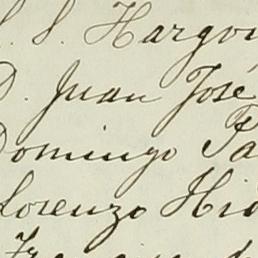 S. Hargou
D. Juan José
Domingo Pa
Lorenzo Hid